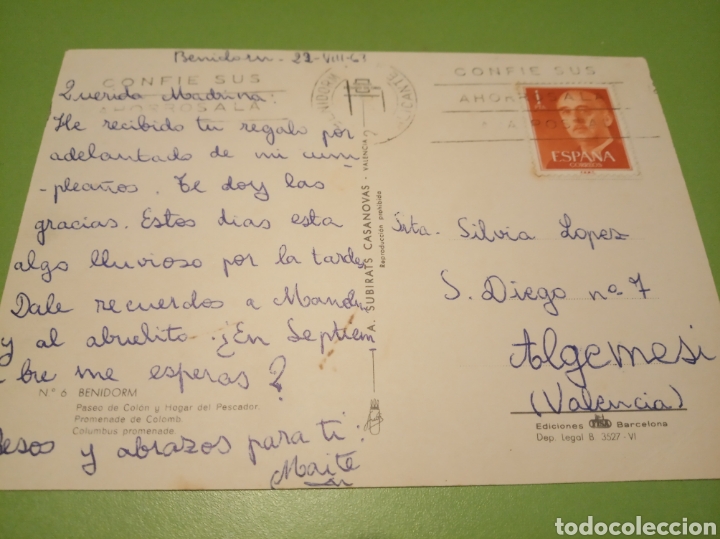 Benidorm - 22-VIII-61
CONFIE SUS
AHORROS A LA
Querida Madrina:
He recibido tu regalo por
adelantado de mi cum-
-pleaños. Te doy las
gracias. Estos dias esta
algo lluvioso por la tarde.
Dale recuerdos a
y al abuelito. ¿En Septiem
bre me esperas?
Nº 6 BENIDORM
Paseo de Colón y Hogar del Pescador.
Promenade de Colomb.
Columbus promenade.
Besos y abrazos para ti
Maite
BENIDORM
ALICANTE
A. SUBIRATS CASANOVAS - VALENCIA
Reproducción prohibida
CONFIE SUS
ESPAÑA
CORREOS
Srta. Silvia Lopez
S. Diego nº 7
Algemesi
(Valencia)
Ediciones Barcelona
Dep. Legal B. 3527-VI
todocoleccion